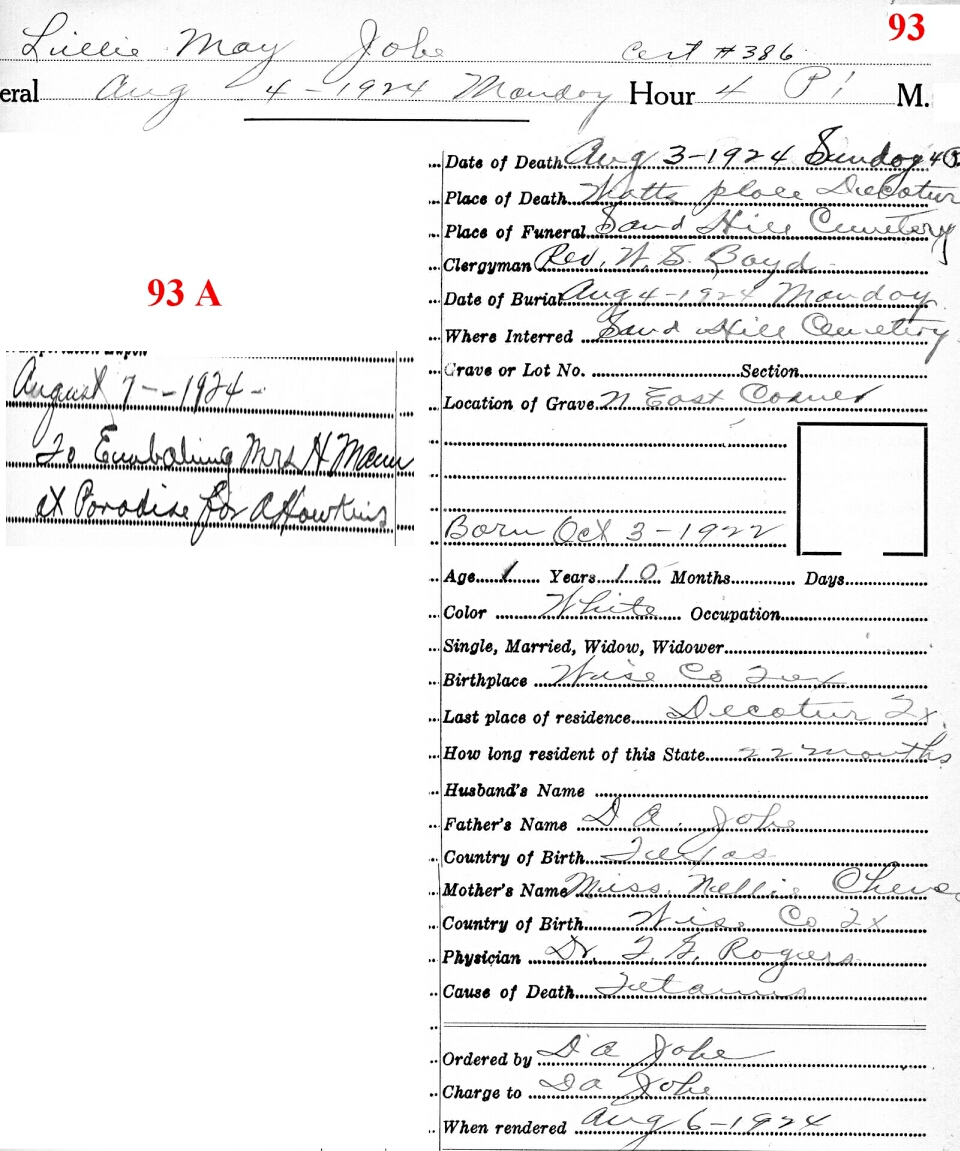 93
Lillie May Jobe Cert #386
eral Aug 4-1924 Monday Hour 4 P M.
Date of Death Aug 3-1924 Sunday 4 P
Place of Death Watts place Decatur
Place of Funeral Sand Hill Cemetery
Clergyman Rev. W. S. Boyd
Date of Burial Aug 4-1924 Monday
Where Interred Sand Hill Cemetery
Grave or Lot No. Section
Location of Grave N East Corner
Born Oct 3-1922
Age 1 Years 10 Months Days
Color White Occupation
Single, Married, Widow, Widower
Birthplace Wise Co Tex
Last place of residence Decatur Tx.
How long resident of this State 22 months
Husband's Name
Father's Name D A. Jobe
Country of Birth Texas
Mother's Name Miss. Nellie
Country of Birth Wise Co Tx
Physician Dr. T. G. Rogers
Cause of Death Tetanus
Ordered by D A Jobe
Charge to D A Jobe
When rendered Aug 6-1924
93 A
August 7--1924-
To Embalming Mrs H Mann
at Paradise for A Hawkins